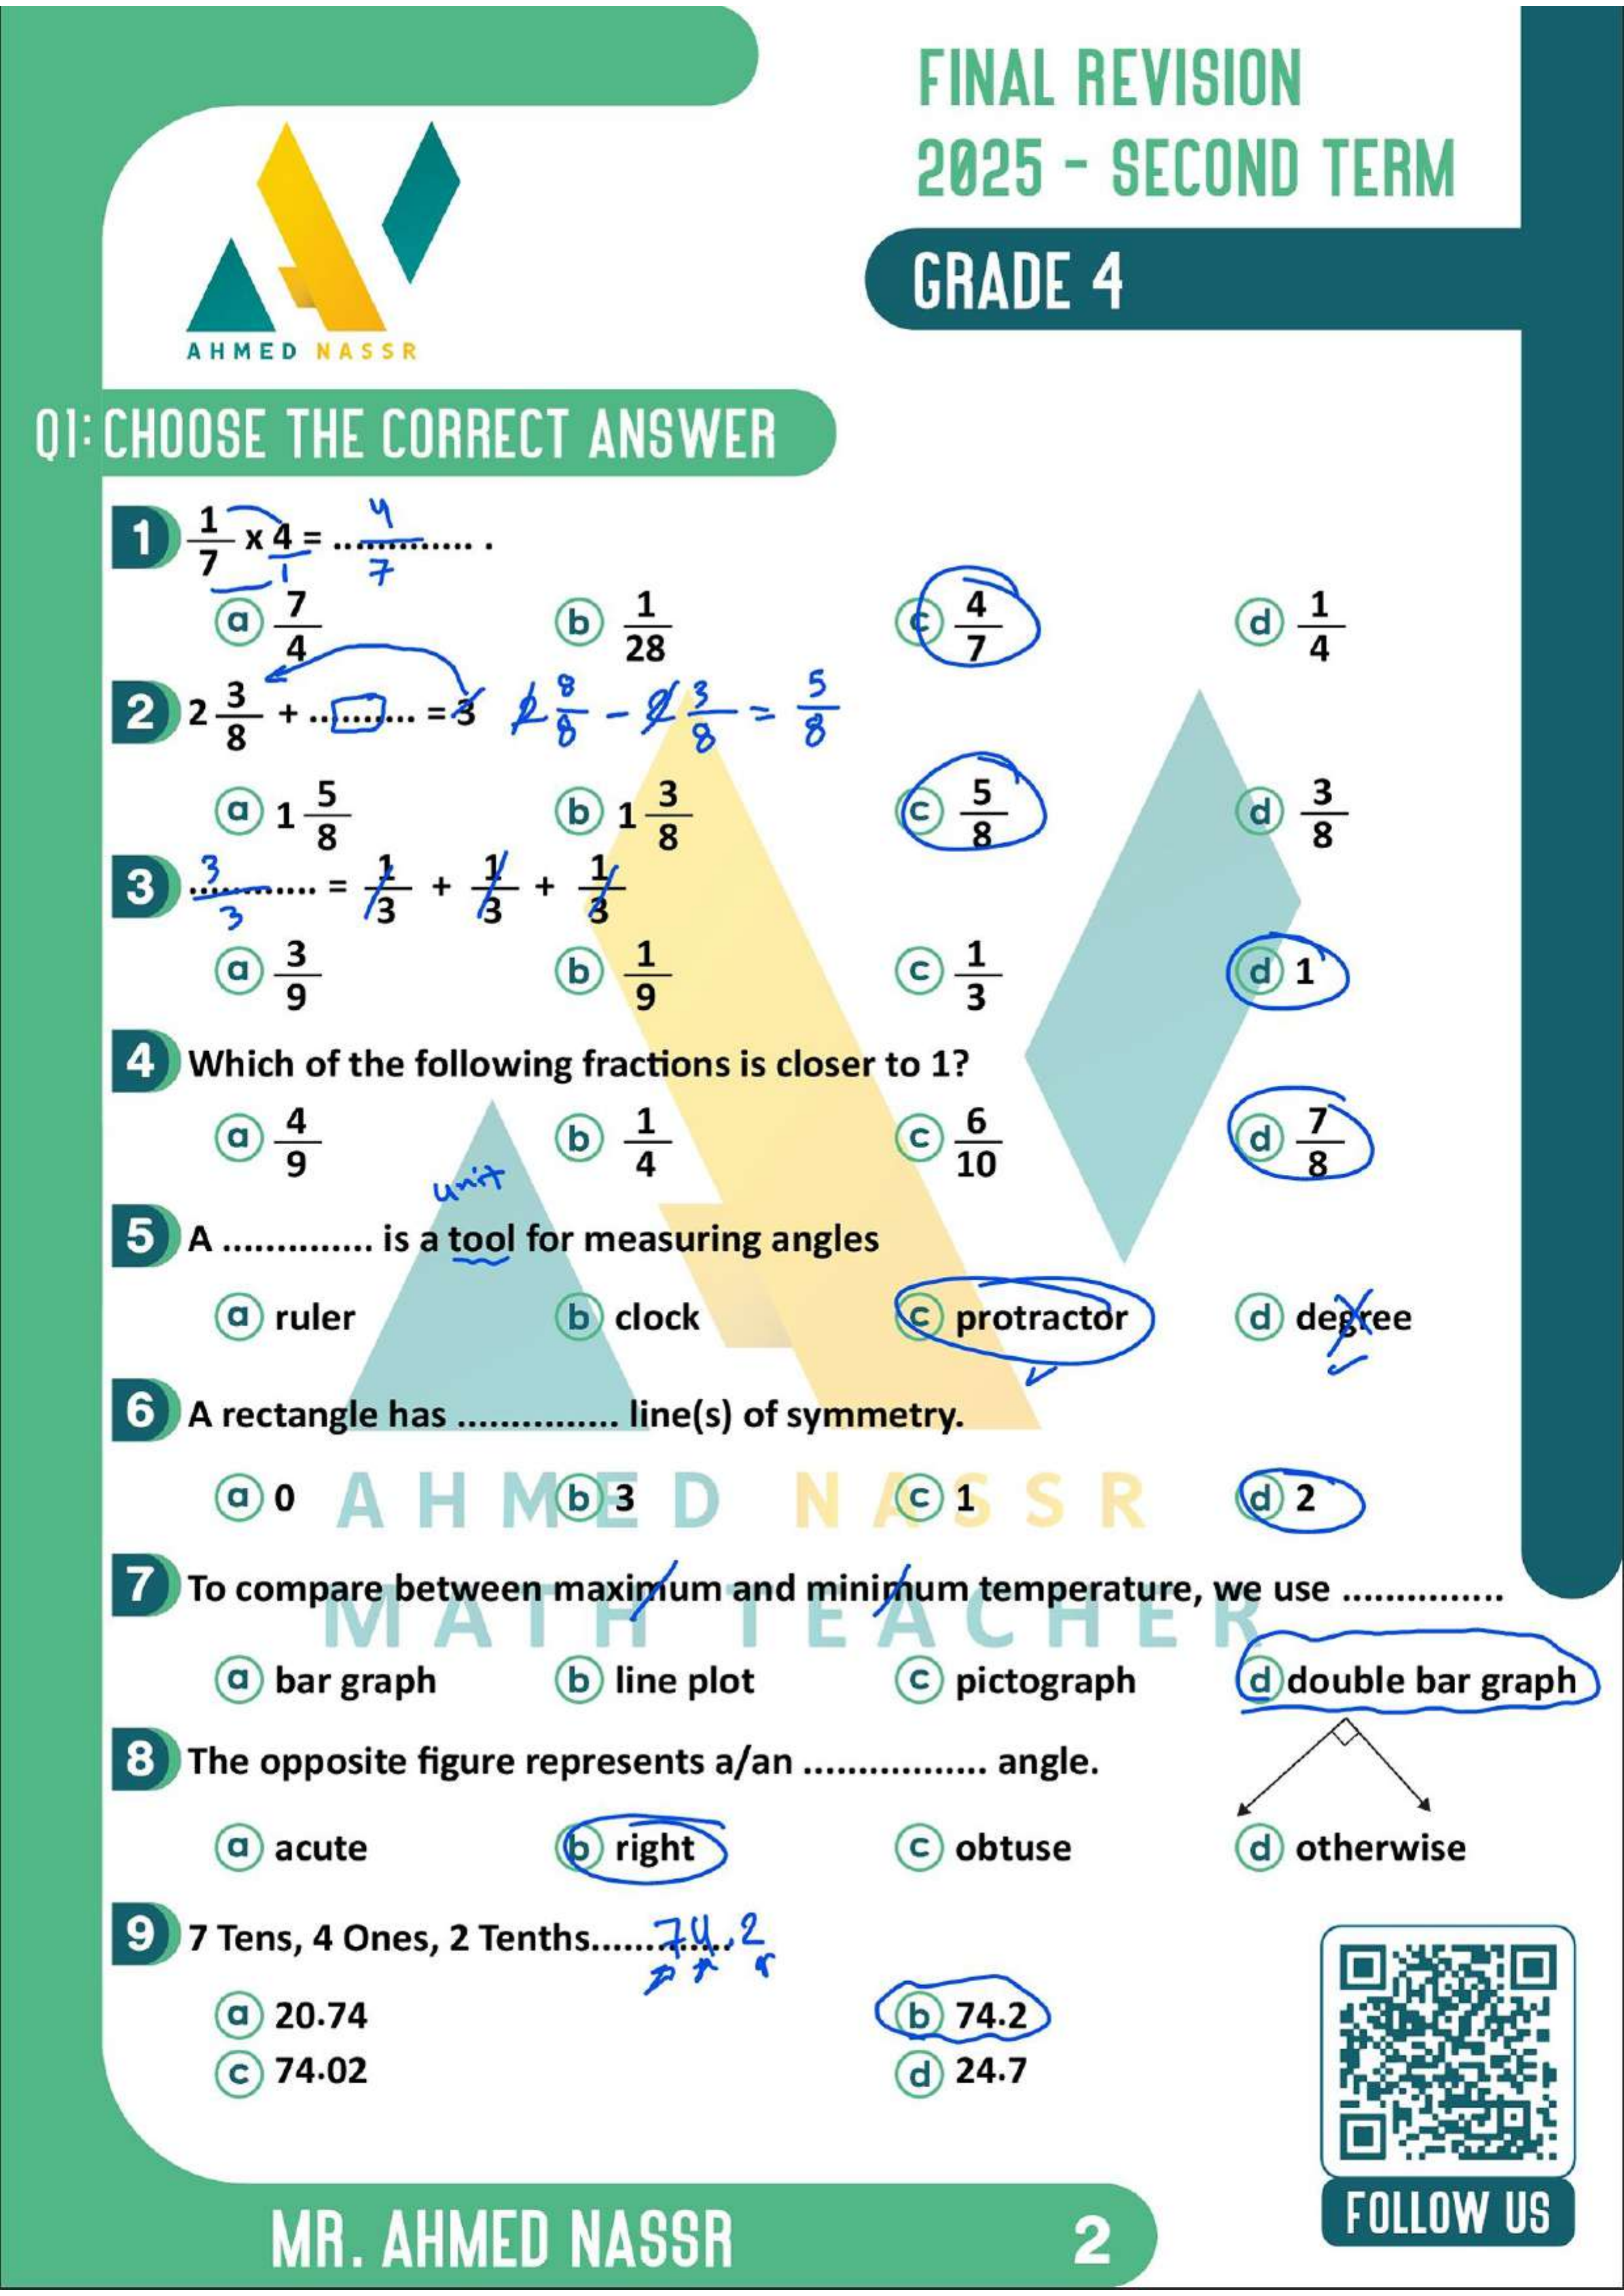 FINAL REVISION
2025 - SECOND TERM
GRADE 4
AHMED NASSR
Q1: CHOOSE THE CORRECT ANSWER
1 1/7 x 4/1 = ............. . 4/7
a 7/4 b 1/28 c 4/7 d 1/4
2 2 3/8 + .......... = 3 2 8/8 - 2 3/8 = 5/8
a 1 5/8 b 1 3/8 c 5/8 d 3/8
3 3/3 ............ = 1/3 + 1/3 + 1/3
a 3/9 b 1/9 c 1/3 d 1
4 Which of the following fractions is closer to 1?
a 4/9 b 1/4 c 6/10 d 7/8
unit
5 A .............. is a tool for measuring angles
a ruler b clock c protractor d degree
6 A rectangle has ............... line(s) of symmetry.
a 0 b 3 c 1 d 2
AHMED NASSR
7 To compare between maximum and minimum temperature, we use ...............
MATH TEACHER
a bar graph b line plot c pictograph d double bar graph
8 The opposite figure represents a/an ................. angle.
a acute b right c obtuse d otherwise
9 7 Tens, 4 Ones, 2 Tenths............. 74.2
a 20.74 b 74.2
c 74.02 d 24.7
FOLLOW US
MR. AHMED NASSR 2